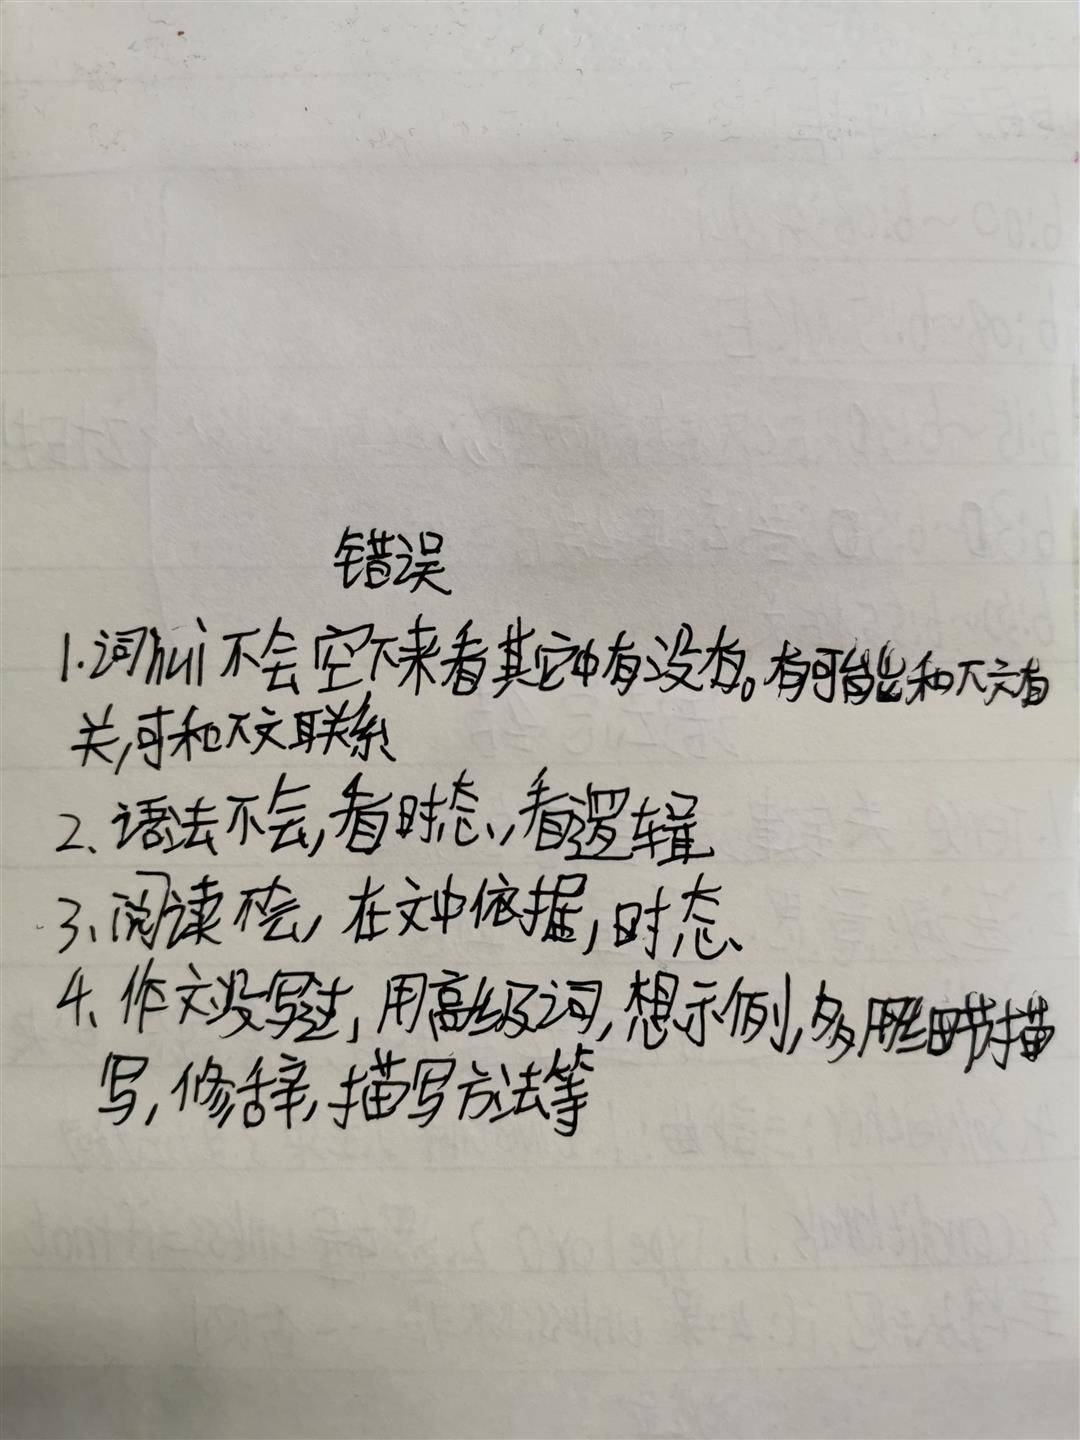 错误
1.词hui不会空下来看其它中有没有。有可能和下文有
关,可和下文联系
2、语法不会,看时态,看逻辑
3、阅读不会,在文中依据,时态、
4、作文没写过,用高级词,想示例,多用细节描
写,修辞,描写方法等